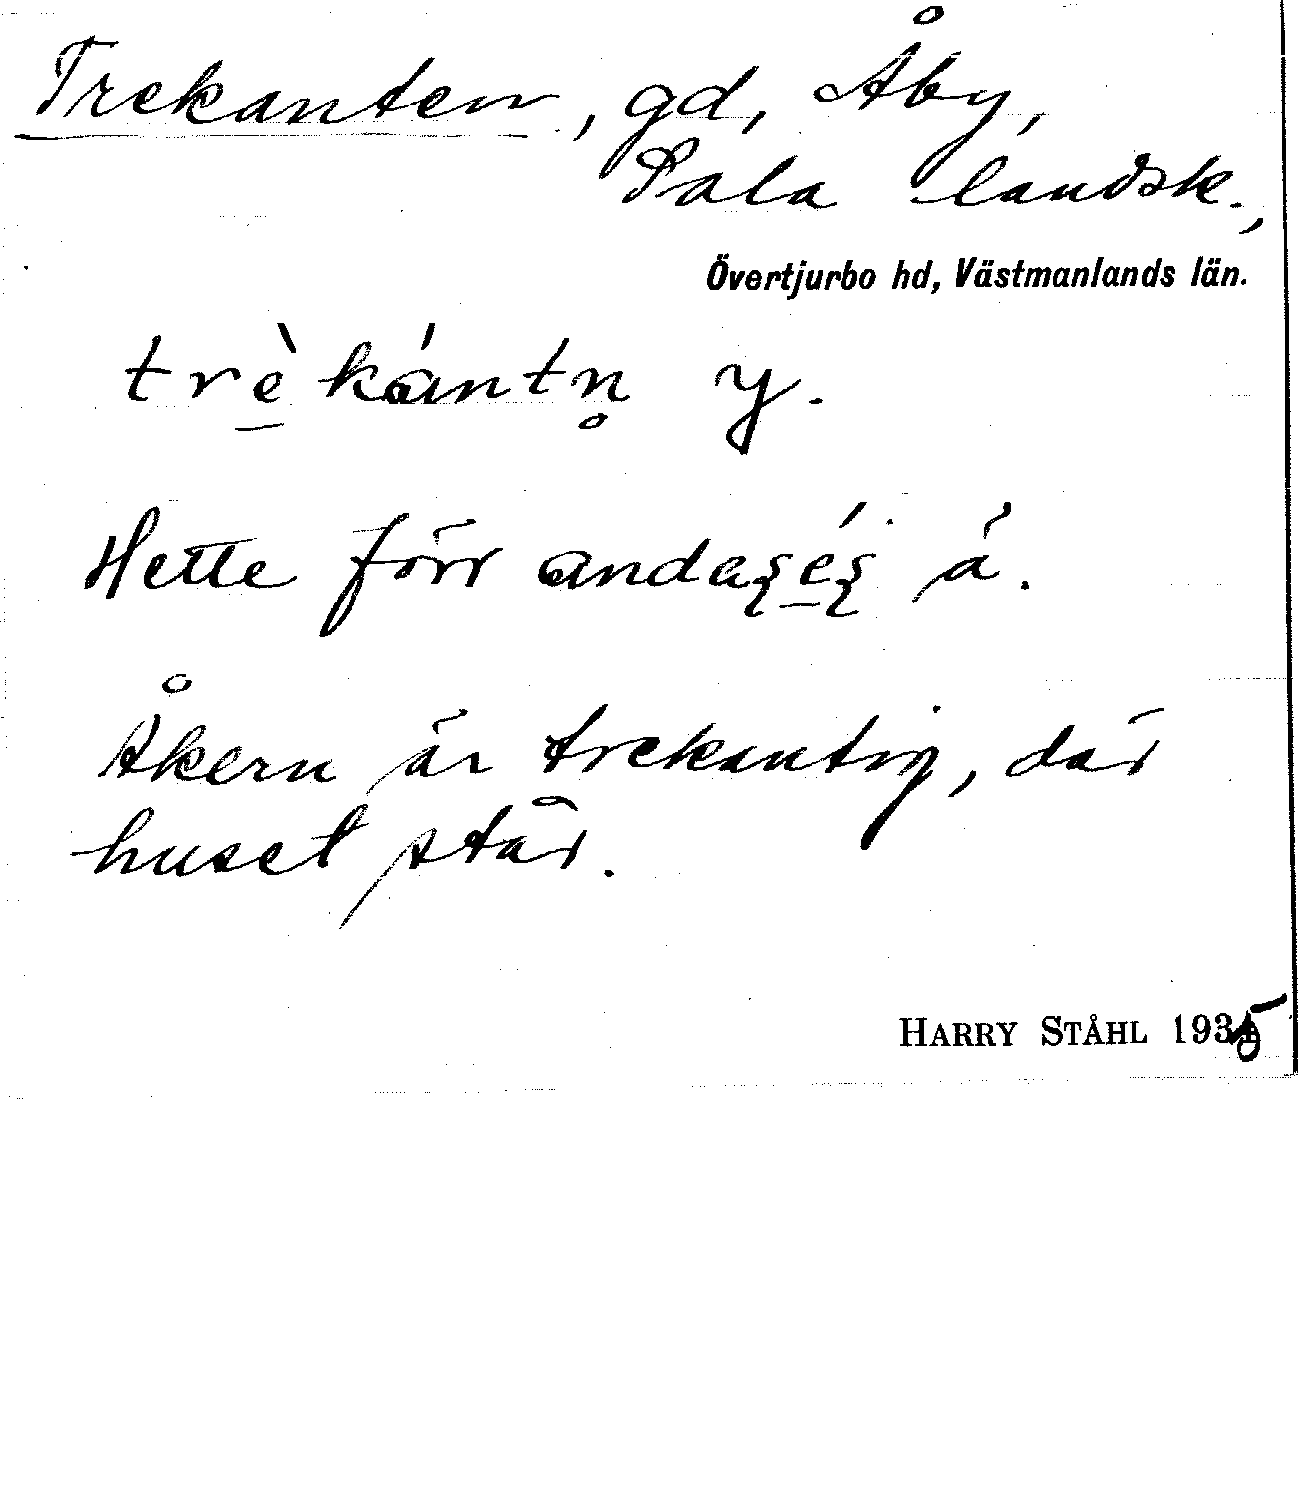 Trekanten, gd, Åby,
Sala landsk.,
Övertjurbo hd, Västmanlands län.
trè̲kántn̥ y.
Hette förr
Åkern är trekantig, där
huset står.
HARRY STÅHL 1935